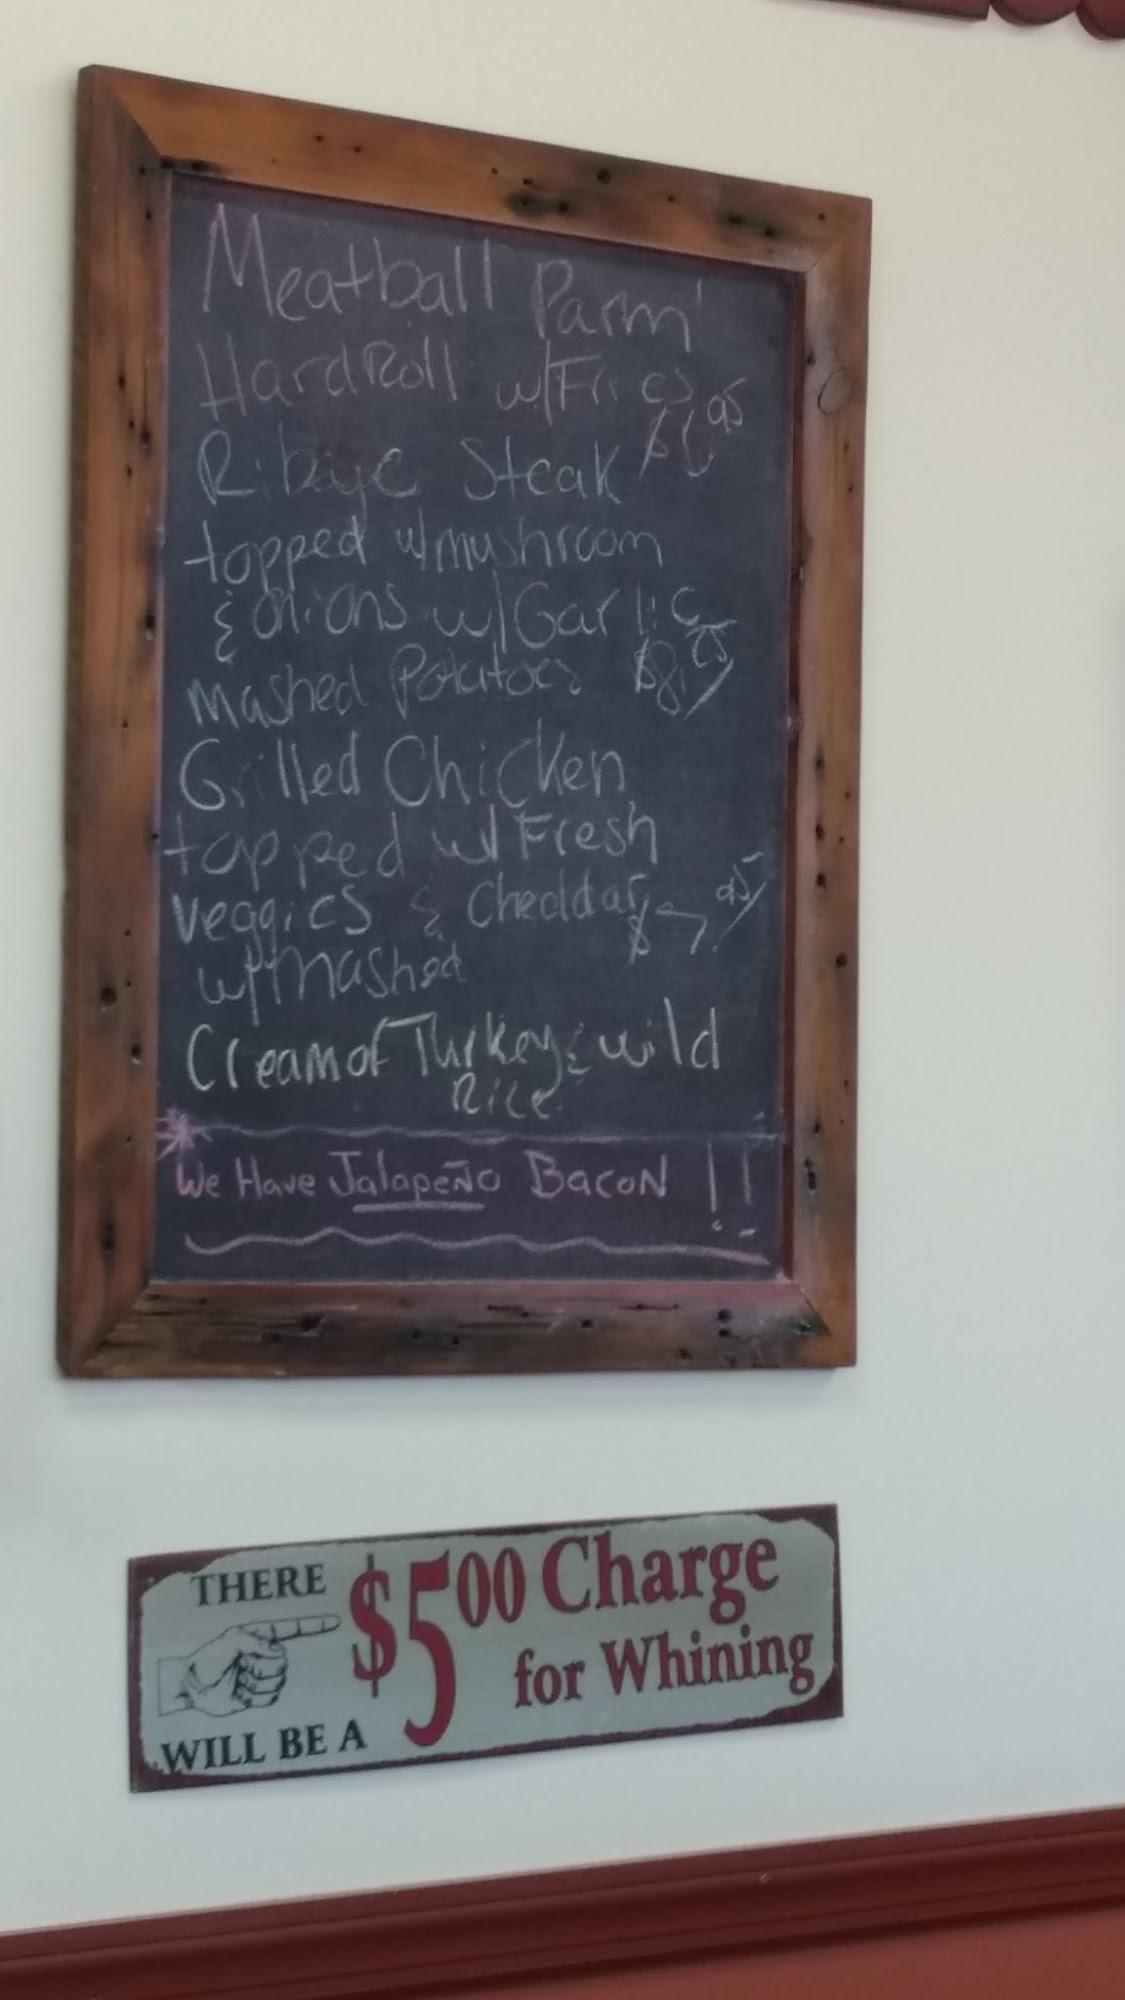 Meatball Parm
HardRoll w/Fries
$6.95
Ribeye Steak
topped w/mushroom
& onions w/Garlic
mashed Potatoes
Grilled Chicken
topped w/ Fresh
veggies & Cheddar $7.95
w/mashed
Cream of Turkey & wild
Rice
We Have Jalapeño Bacon !!
THERE
WILL BE A
$5.00 Charge
for Whining